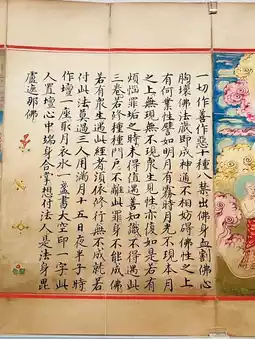 一切作善作惡十種八禁出佛身血割佛心
胸壞佛法藏即成神通不相妨礙佛性之上
有何業性譬如明月有霧時月光不現本月
之上無現無不現衆生見性亦復如是若有
煩惱罪垢之時未得值遇善知識不得遇此
三卷若修種種門戶不離此罪身不能成佛
若有衆生遇此經者須依修行無不成就若
付此法員遇三人用滿月十五日夜半子時
作壇一座取月衣水一盞書大空印一字此
人置壇心中端坐合掌想付法人是法身毘
盧遮那佛